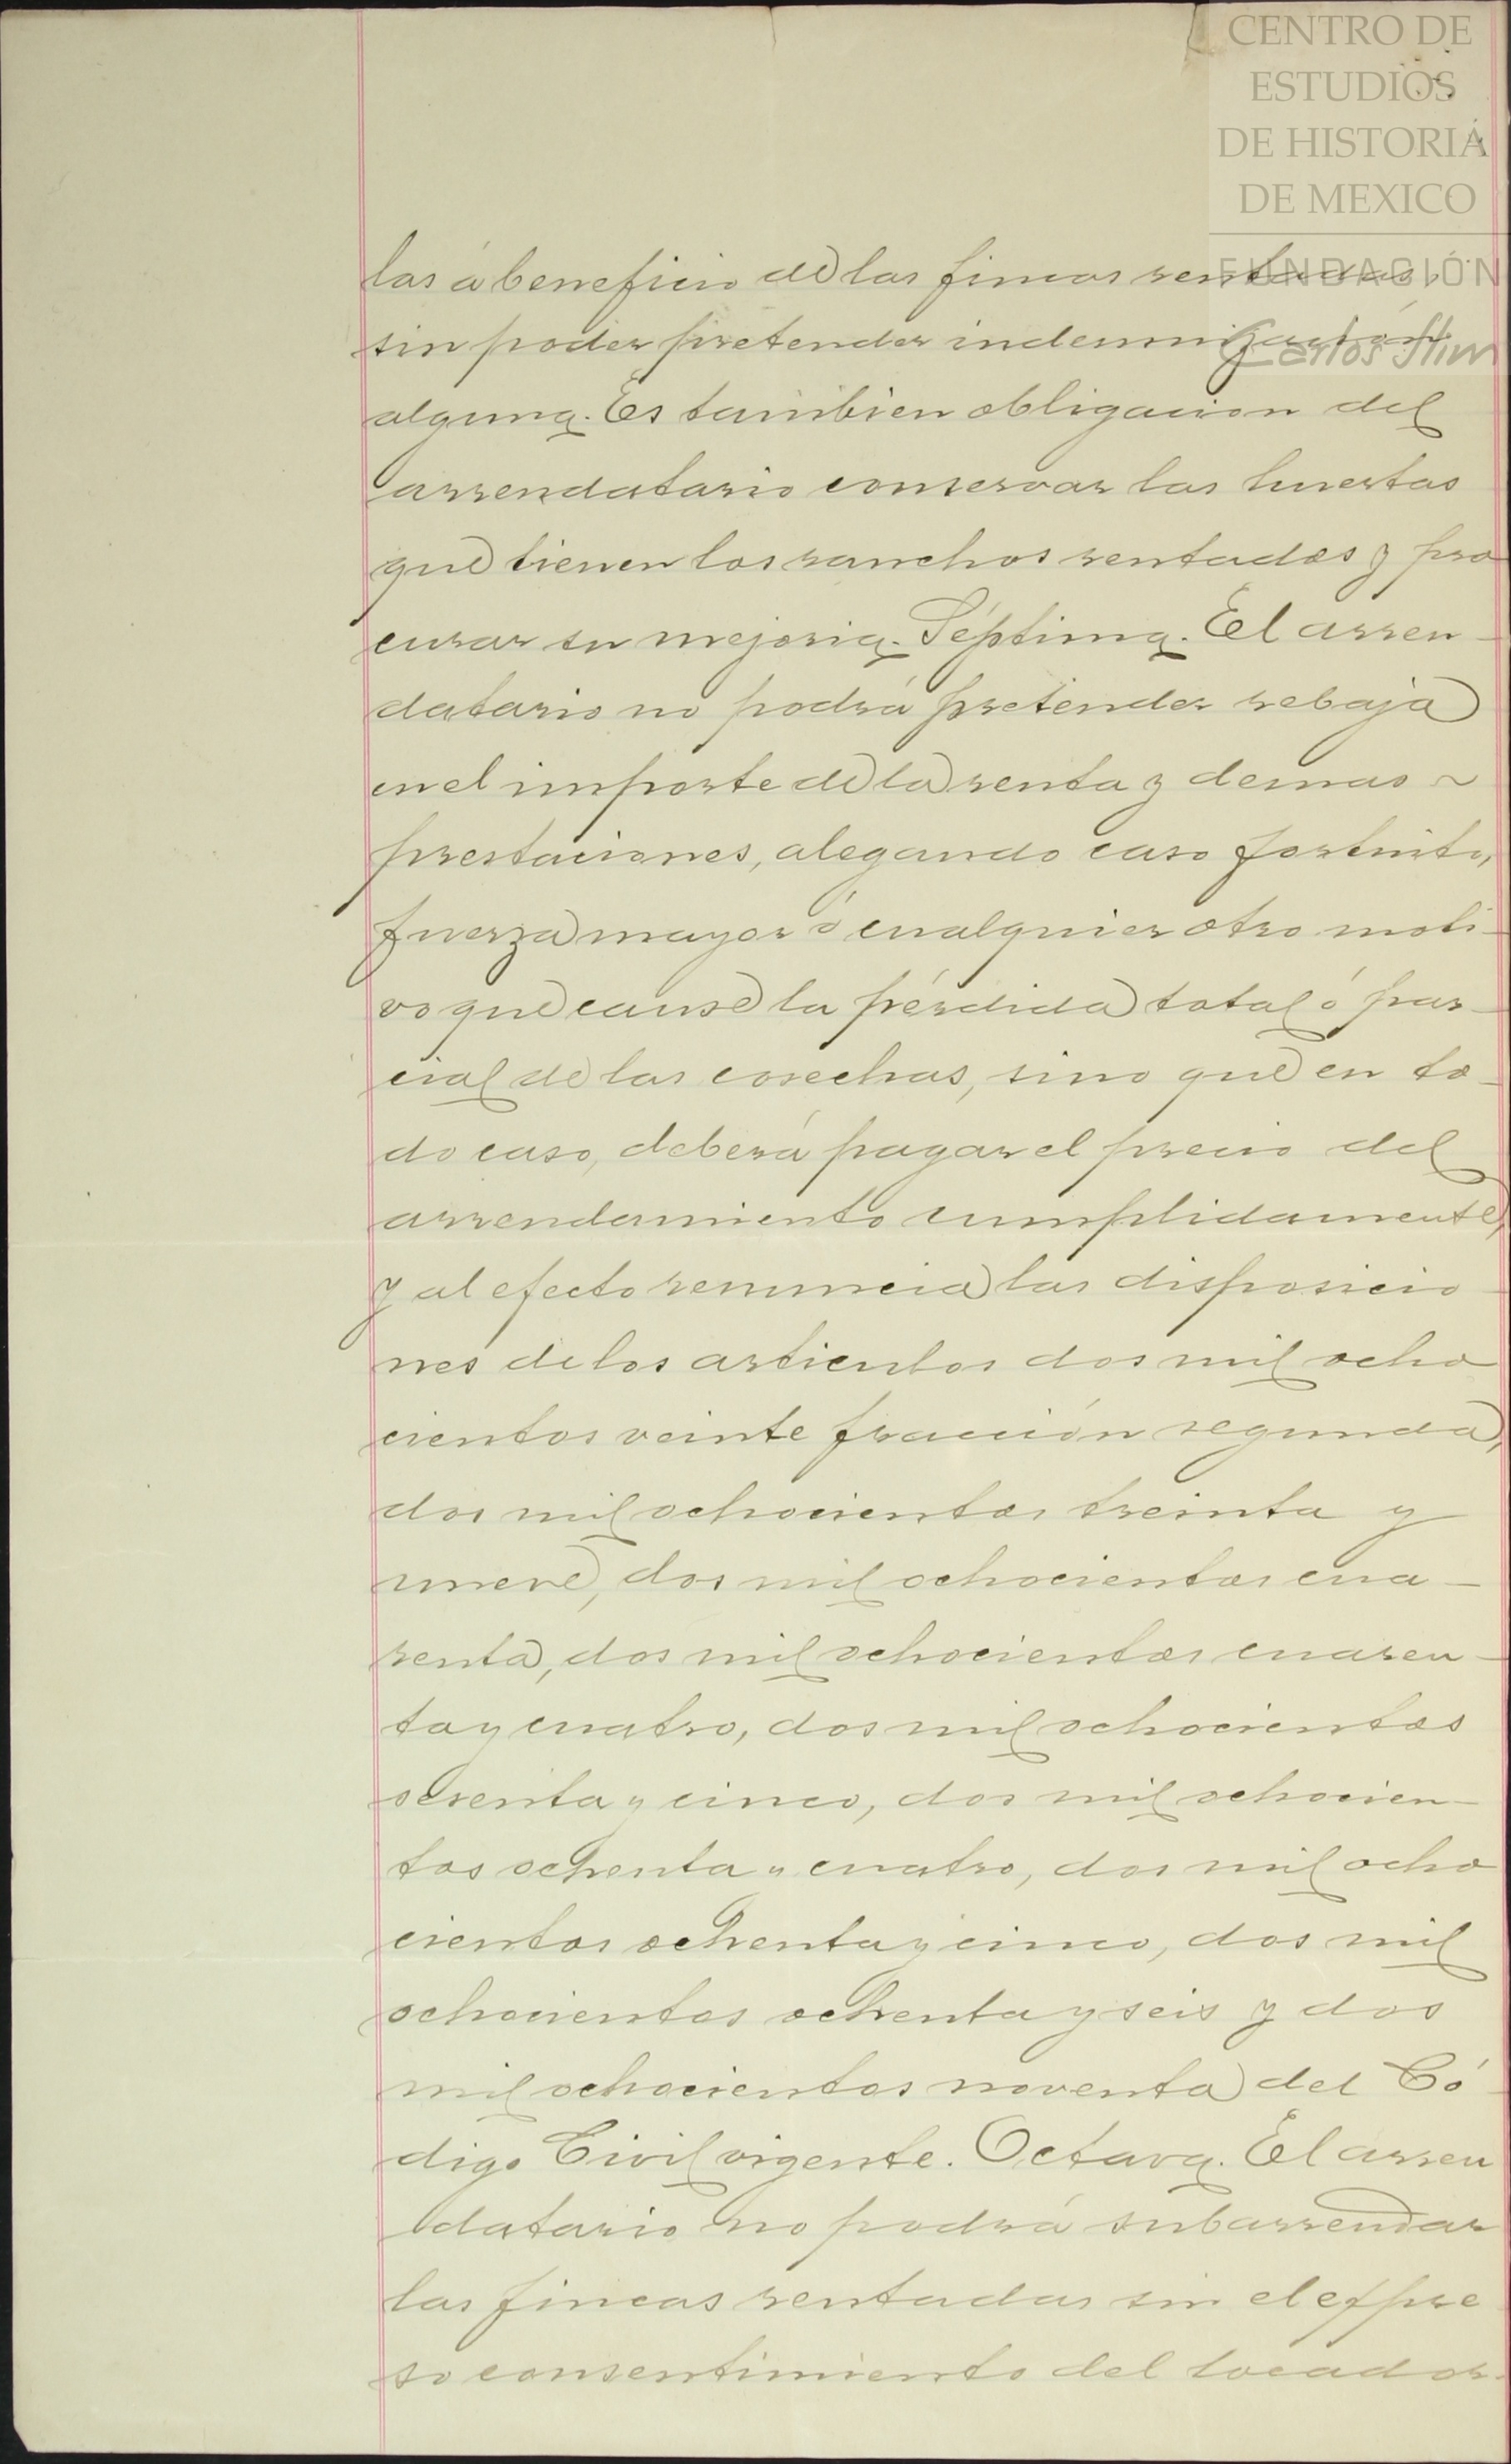 CENTRO DE
ESTUDIOS
DE HISTORIA
DE MEXICO
FUNDACIÓN
Carlos Slim
las á beneficio de las fincas rentadas,
sin poder pretender indemnización
alguna. Es tambien obligacion del
arrendatario conservar las huertas
que tienen los ranchos rentados y pro
curar su mejoria. Séptima. El arren-
datario no podrá pretender rebaja
en el importe de la renta y demas ~
prestaciones, alegando caso fortuito,
fuerza mayor ó cualquier otro moti-
vo que cause la pérdida total ó par-
cial de las cosechas, sino que en to-
do caso, deberá pagar el precio del
arrendamiento cumplidamente,
y al efecto renuncia las disposicio
nes de los articulos dos mil ocho
cientos veinte fracción segunda,
dos mil ochocientos treinta y
nueve, dos mil ochocientos cua-
renta, dos mil ochocientos cuaren-
ta y cuatro, dos mil ochocientos
sesenta y cinco, dos mil ochocien-
tos ochenta y cuatro, dos mil ocho
cientos ochenta y cinco, dos mil
ochocientos ochenta y seis y dos
mil ochocientos noventa del Có-
digo Civil vigente. Octava. El arren
datario no podrá subarrendar
las fincas rentadas sin el expre
so consentimiento del locador.